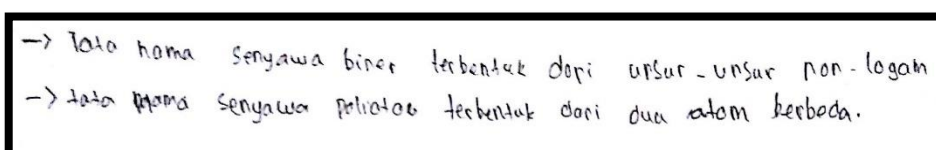 -> Tata nama senyawa biner terbentuk dari unsur-unsur non-logam
-> tata nama senyawa poliatom terbentuk dari dua atom berbeda.